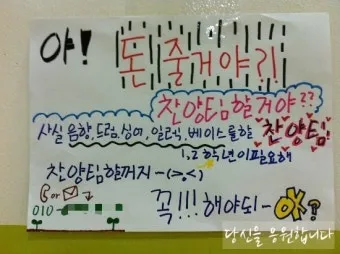 야! 돈 줄거야?!
찬양팀할거야??
사실 음향, 드럼, 싱어, 일렉, 베이스를할 찬양팀
1,2 학년이필요해
찬양팀할꺼지-(>.<)
or
010-
꼭!!! 해야되-OK?
당신을 응원합니다